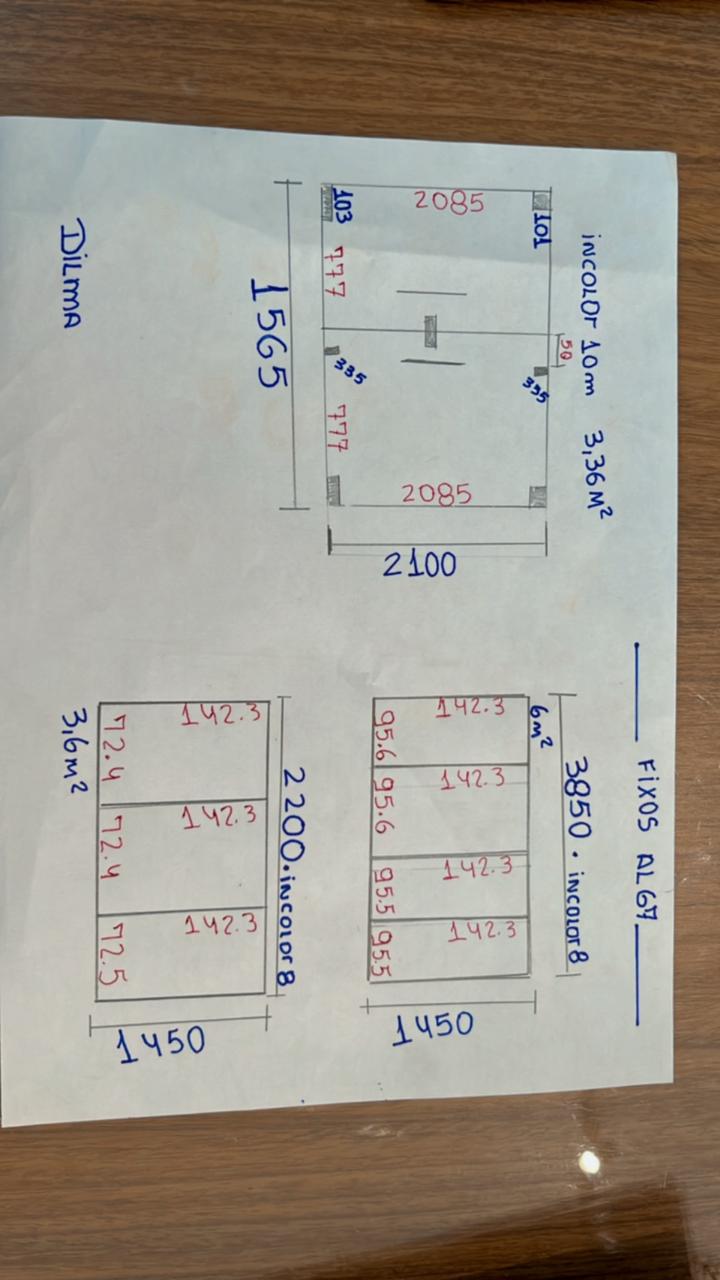 incolor 10m 3,36M²
50
101
335
2085
2085
2100
103
777
335
777
1565
DILMA
FIXOS AL67
3850 • incolor 8
6m²
142.3
142.3
142.3
142.3
95.6
95.6
95.5
95.5
1450
2200 • incolor 8
142.3
142.3
142.3
72.4
72.4
72.5
1450
3,6m²